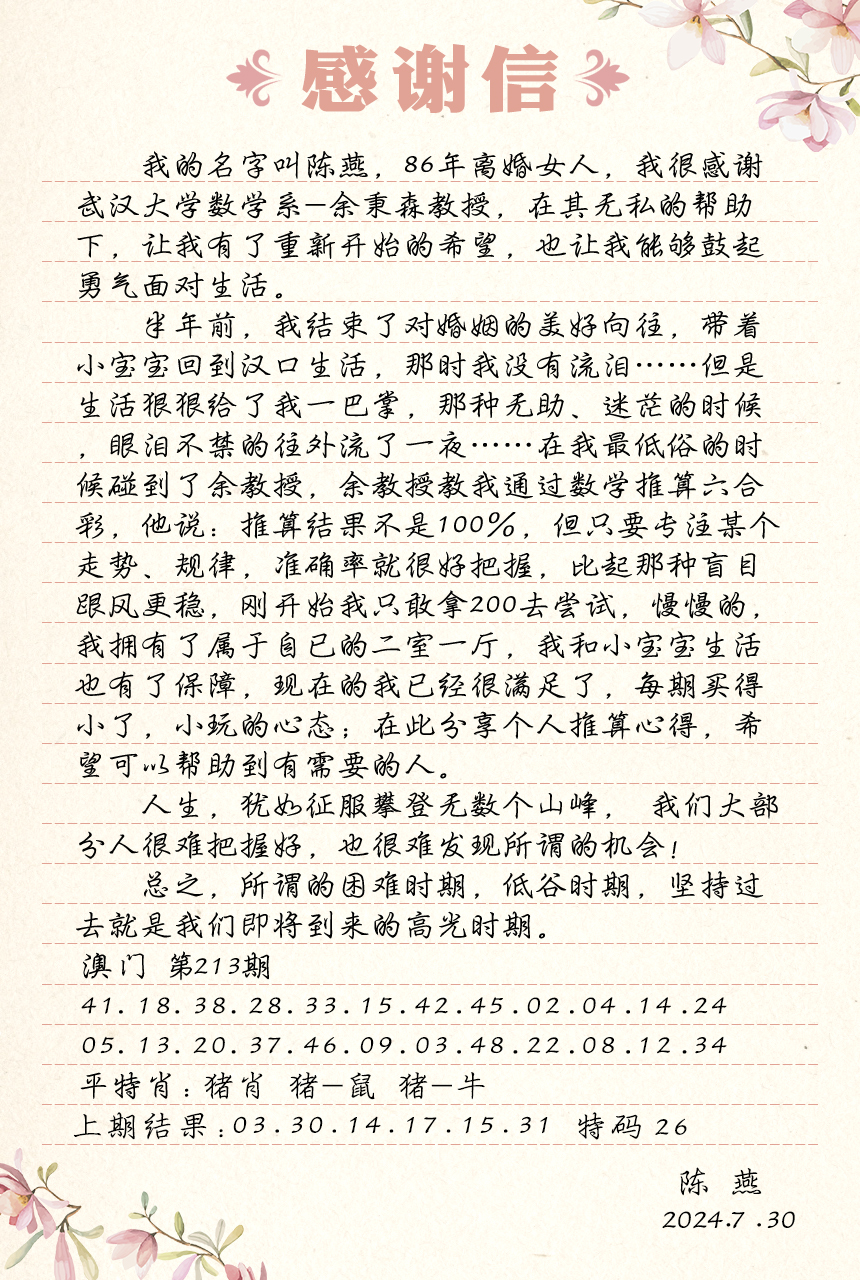 感谢信
我的名字叫陈燕，86年离婚女人，我很感谢
武汉大学数学系—余秉森教授，在其无私的帮助
下，让我有了重新开始的希望，也让我能够鼓起
勇气面对生活。
半年前，我结束了对婚姻的美好向往，带着
小宝宝回到汉口生活，那时我没有流泪……但是
生活狠狠给了我一巴掌，那种无助、迷茫的时候
，眼泪不禁的往外流了一夜……在我最低俗的时
候碰到了余教授，余教授教我通过数学推算六合
彩，他说：推算结果不是100%，但只要专注某个
走势、规律，准确率就很好把握，比起那种盲目
跟风更稳，刚开始我只敢拿200去尝试，慢慢的，
我拥有了属于自已的二室一厅，我和小宝宝生活
也有了保障，现在的我已经很满足了，每期买得
小了，小玩的心态；在此分享个人推算心得，希
望可以帮助到有需要的人。
人生，犹如征服攀登无数个山峰， 我们大部
分人很难把握好，也很难发现所谓的机会！
总之，所谓的困难时期，低谷时期，坚持过
去就是我们即将到来的高光时期。
澳门 第213期
41.18.38.28.33.15.42.45.02.04.14.24
05.13.20.37.46.09.03.48.22.08.12.34
平特肖：猪肖 猪—鼠 猪—牛
上期结果：03.30.14.17.15.31 特码 26
陈 燕
2024.7.30